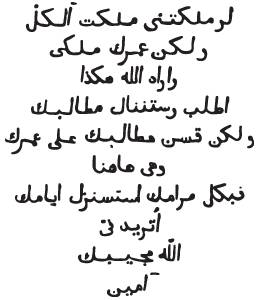 لو ملكتنى ملكت ألكل
ولكن عمرك ملكى
واراه الله هكذا
اطلب وستنال مطالبك
ولكن قسن مطالبك على عمرك
وهى هامنا
فبكل مرامك استستنزل ايامك
أتريدنى
الله مجيبك
امين